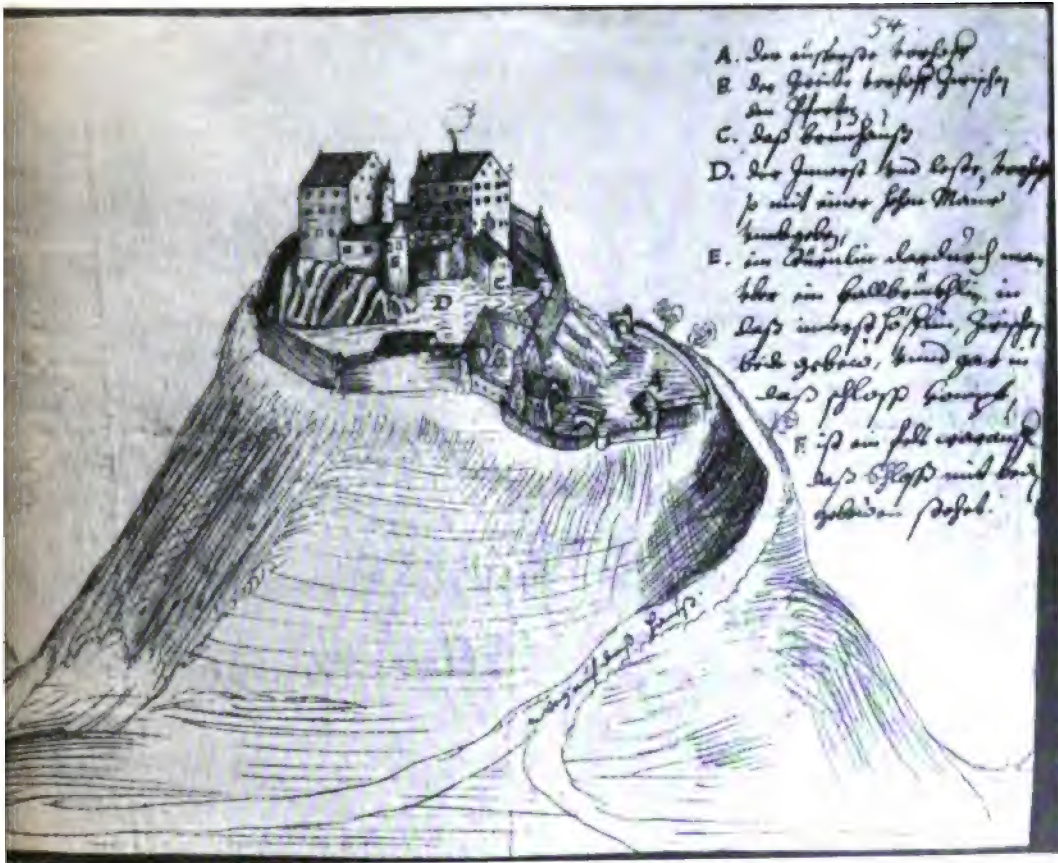 54.
A. Der eüsserste vorhoff
B. der Zweite vorhoff Zwischen
den Pforten
C. daß brunhauß
D. der Innerst vnd leste, vorhoff
so mit einer hohen Maur
vmbgeben,
E. ein dardurch man
vber ein fallbrückhlin in
daß innerst höfflin, Zwischen
beide gebeüw, vnnd gar in
daß schloss kompt,
F. ist ein felß warauff
daß Schloß mit den
gebeüwen stehet.
weg auf daß hauß.
D
C
A